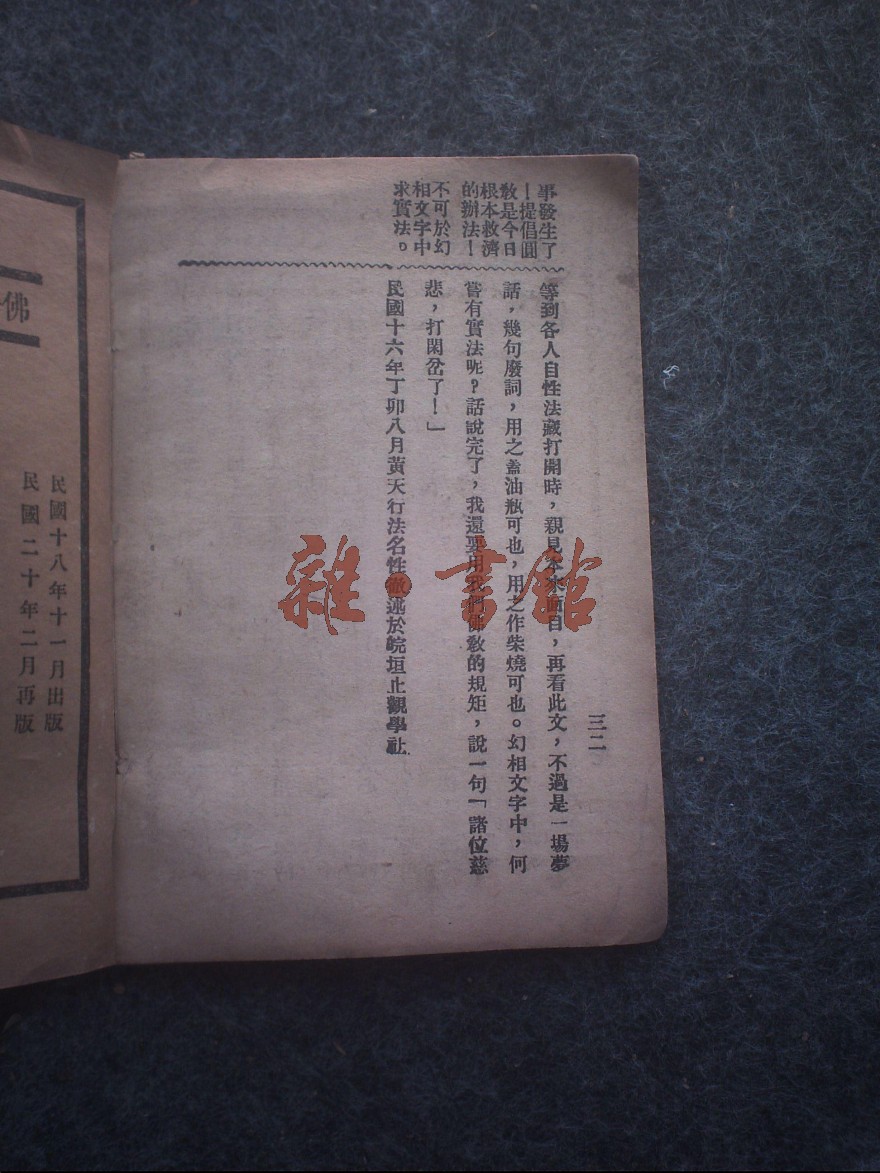 三二
事發生了
！提倡圓
教是今日
根本救濟
的辦法！
不可於幻
相文字中
求實法。
等到各人自性法藏打開時，親見本來面目，再看此文，不過是一場夢
話，幾句廢詞，用之蓋油瓶可也，用之作柴燒可也。幻相文字中，何
嘗有實法呢？話說完了，我還要用我們佛教的規矩，說一句「諸位慈
悲，打閑岔了！」
民國十六年丁卯八月黃天行法名性徹述於皖垣止觀學社
民國十八年十一月出版
民國二十年二月再版
佛
雜·書館